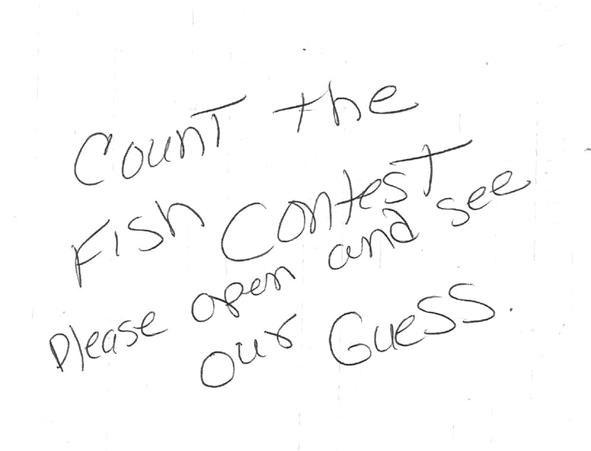 Count the
Fish Contest
Please open and see
our Guess.